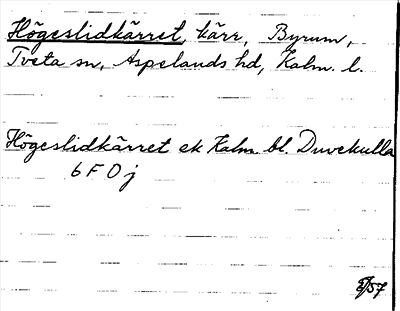 Högeslidkärret, kärr, Byrum,
Tveta sn, Aspelands hd, Kalm. l.
Högeslidkärret ek Kalm bl. Duvekulla
6 F 0 j